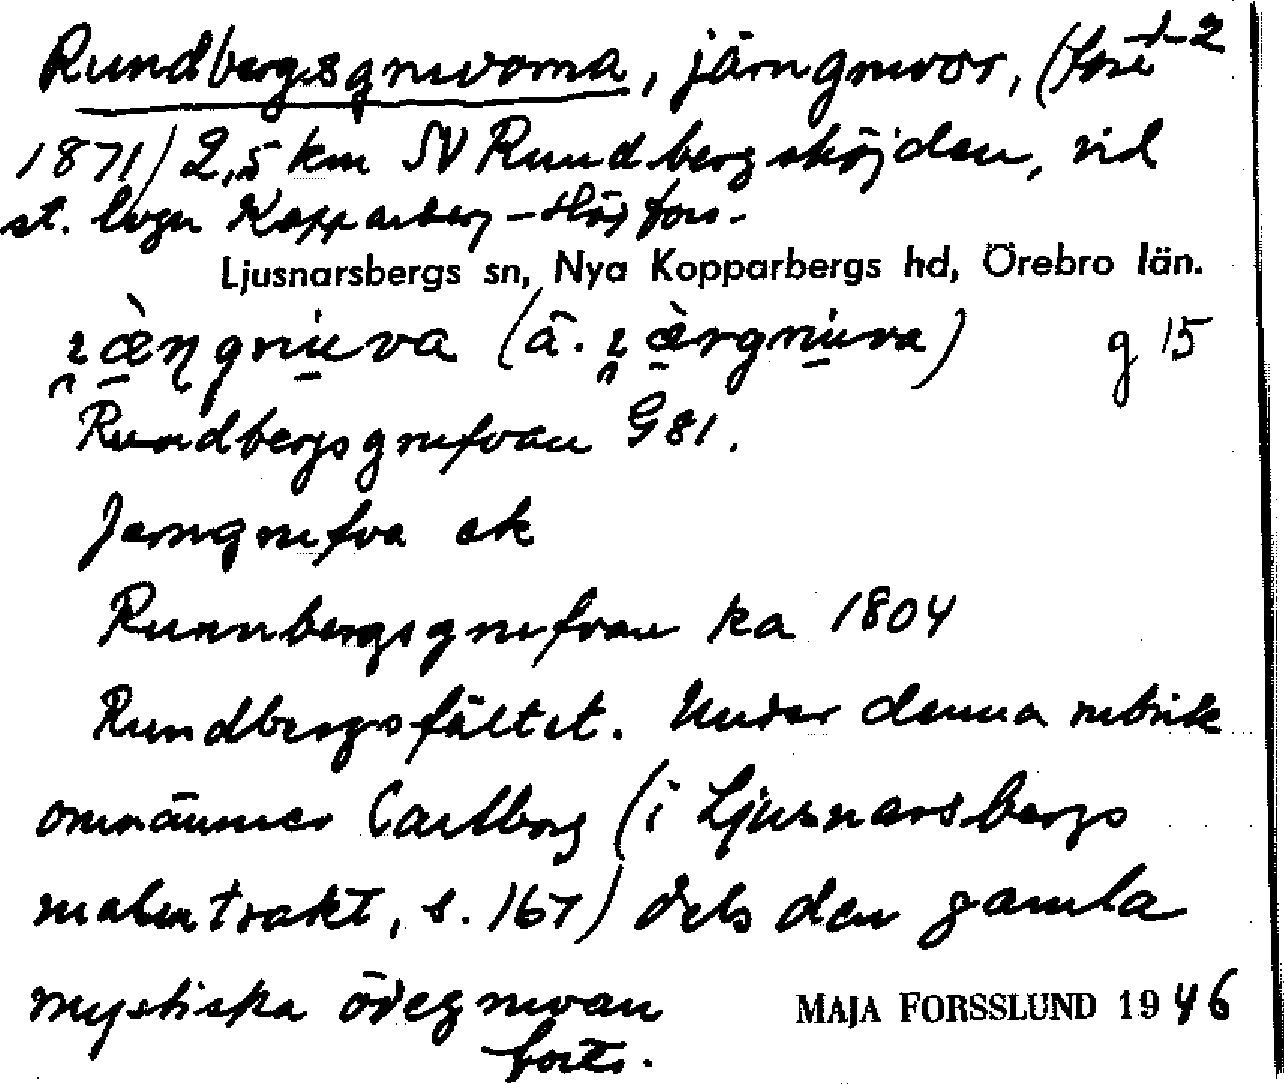 Rundbergsgruvorna, järngruvor, (före 1-2
1871) 2,5 km SV Rundbergshöjden, vid
st. vägen Kopparberg-Hörken.
Ljusnarsbergs sn, Nya Kopparbergs hd, Örebro län.
g 15
Rundbergsgrufvan G81.
Jerngrufva ek
Runnbergsgrufvan ka 1804
Rundbergsfältet. Under denna rubrik
omnämner Carlborg (i Ljusnarsbergs
malmtrakt, s. 167) dels den gamla
mystiska ödegruvan
forts.
MAJA FORSSLUND 1946